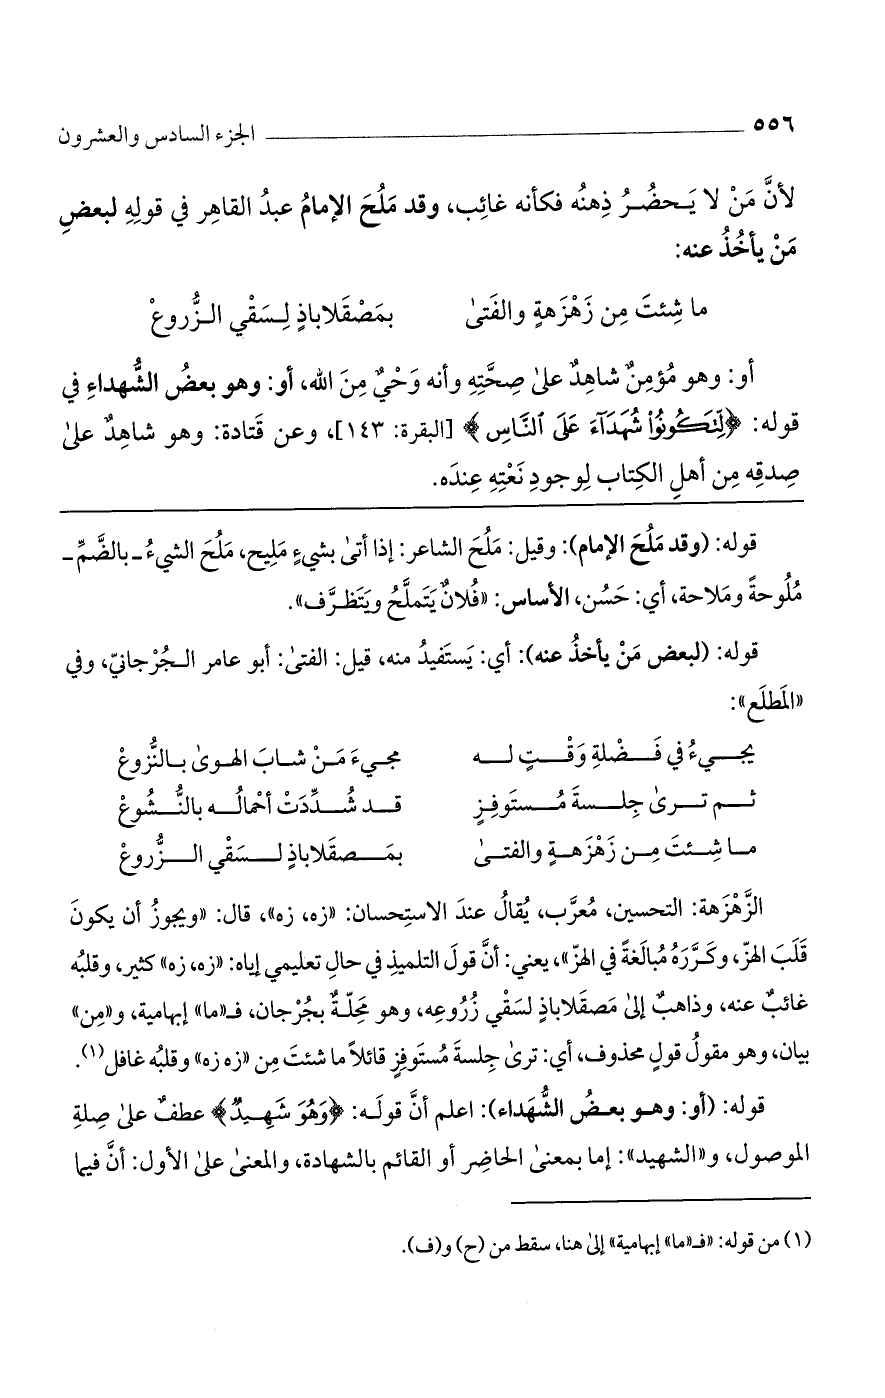 ٥٥٦ الجزء السادس والعشرون
لأنَّ مَنْ لا يَـحضُـرُ ذِهنُه فكأنه غائِب، وقد مَلُحَ الإمامُ عبدُ القاهِر في قولِهِ لبعضِ
مَنْ يأخُذُ عنه:
ما شِئتَ مِن زَهْزَهةٍ والفَتىٰ بمَصْقَلاباذٍ لِـسَقْي الـزُّروعْ
أو: وهو مُؤمِنٌ شاهِدٌ علىٰ صِحَّتِهِ وأنه وَحْيٌ مِنَ الله، أو: وهو بعضُ الشُّهداءِ في
قوله: ﴿لِّتَكُونُوا۟ شُهَدَآءَ عَلَى ٱلنَّاسِ﴾ [البقرة: ١٤٣]، وعن قَتادة: وهو شاهِدٌ علىٰ
صِدقِه مِن أهلِ الكِتاب لِوجودِ نَعْتِهِ عِندَه.
قوله: (وقد مَلُحَ الإمام): وقيل: مَلُحَ الشاعر: إذا أتىٰ بشيءٍ مَلِيح، مَلُحَ الشيءُ ـ بالضَّمِّ ـ
مُلُوحةً ومَلاحة، أي: حَسُن، الأساس: «فُلانٌ يَتَملَّحُ ويَتَظرَّف».
قوله: (لبعض مَنْ يأخذُ عنه): أي: يَستَفيدُ منه، قيل: الفتىٰ: أبو عامر الـجُرْجانيّ، وفي
«المَطلَع»:
يجـــيءُ في فَـــضْلةِ وَقْـــتٍ لـــه مجيءَ مَـنْ شـابَ الهـوىٰ بـالنُّزوعْ
ثـــم تـــرىٰ جِلـــسةَ مُـــستَوفِزٍ قـــد شُـــدِّدَتْ أحْمالُـــه بالنُّـــشُوعْ
مـا شِـــئتَ مِـــن زَهْزَهـــةٍ والفتـــىٰ بمَـــصقَلاباذٍ لـــسَقْي الـــزُّروعْ
الزَّهْزَهة: التحسين، مُعرَّب، يُقالُ عندَ الاستِحسان: «زه، زه»، قال: «ويجوزُ أن يكونَ
قَلَبَ الهزّ، وكَـرَّرَهُ مُبالَغةً في الهزّ»، يعني: أنَّ قولَ التلميذِ في حالِ تعليمي إياه: «زه، زه» كثير، وقلبُه
غائبٌ عنه، وذاهبٌ إلىٰ مَصقَلاباذٍ لسَقْي زُرُوعِه، وهو مَحِلّةٌ بجُرْجان، فـ«ما» إبهامية، و«مِن»
بيان، وهو مقولُ قولٍ محذوف، أي: ترىٰ جِلسةَ مُستَوفِزٍ قائلاً ما شئتَ مِن «زه زه» وقلبُه غافل(١).
قوله: (أو: وهـو بعـضُ الشُّهَداء): اعلم أنَّ قولَـه: ﴿وَهُوَ شَهِيدٌ﴾ عطفٌ علىٰ صِلةِ
الموصول، و«الشهيد»: إما بمعنىٰ الحاضِر أو القائم بالشهادة، والمعنىٰ علىٰ الأول: أنَّ فيما
(١) من قوله: «فـ«ما» إبهامية» إلىٰ هنا، سقط من (ح) و(ف).